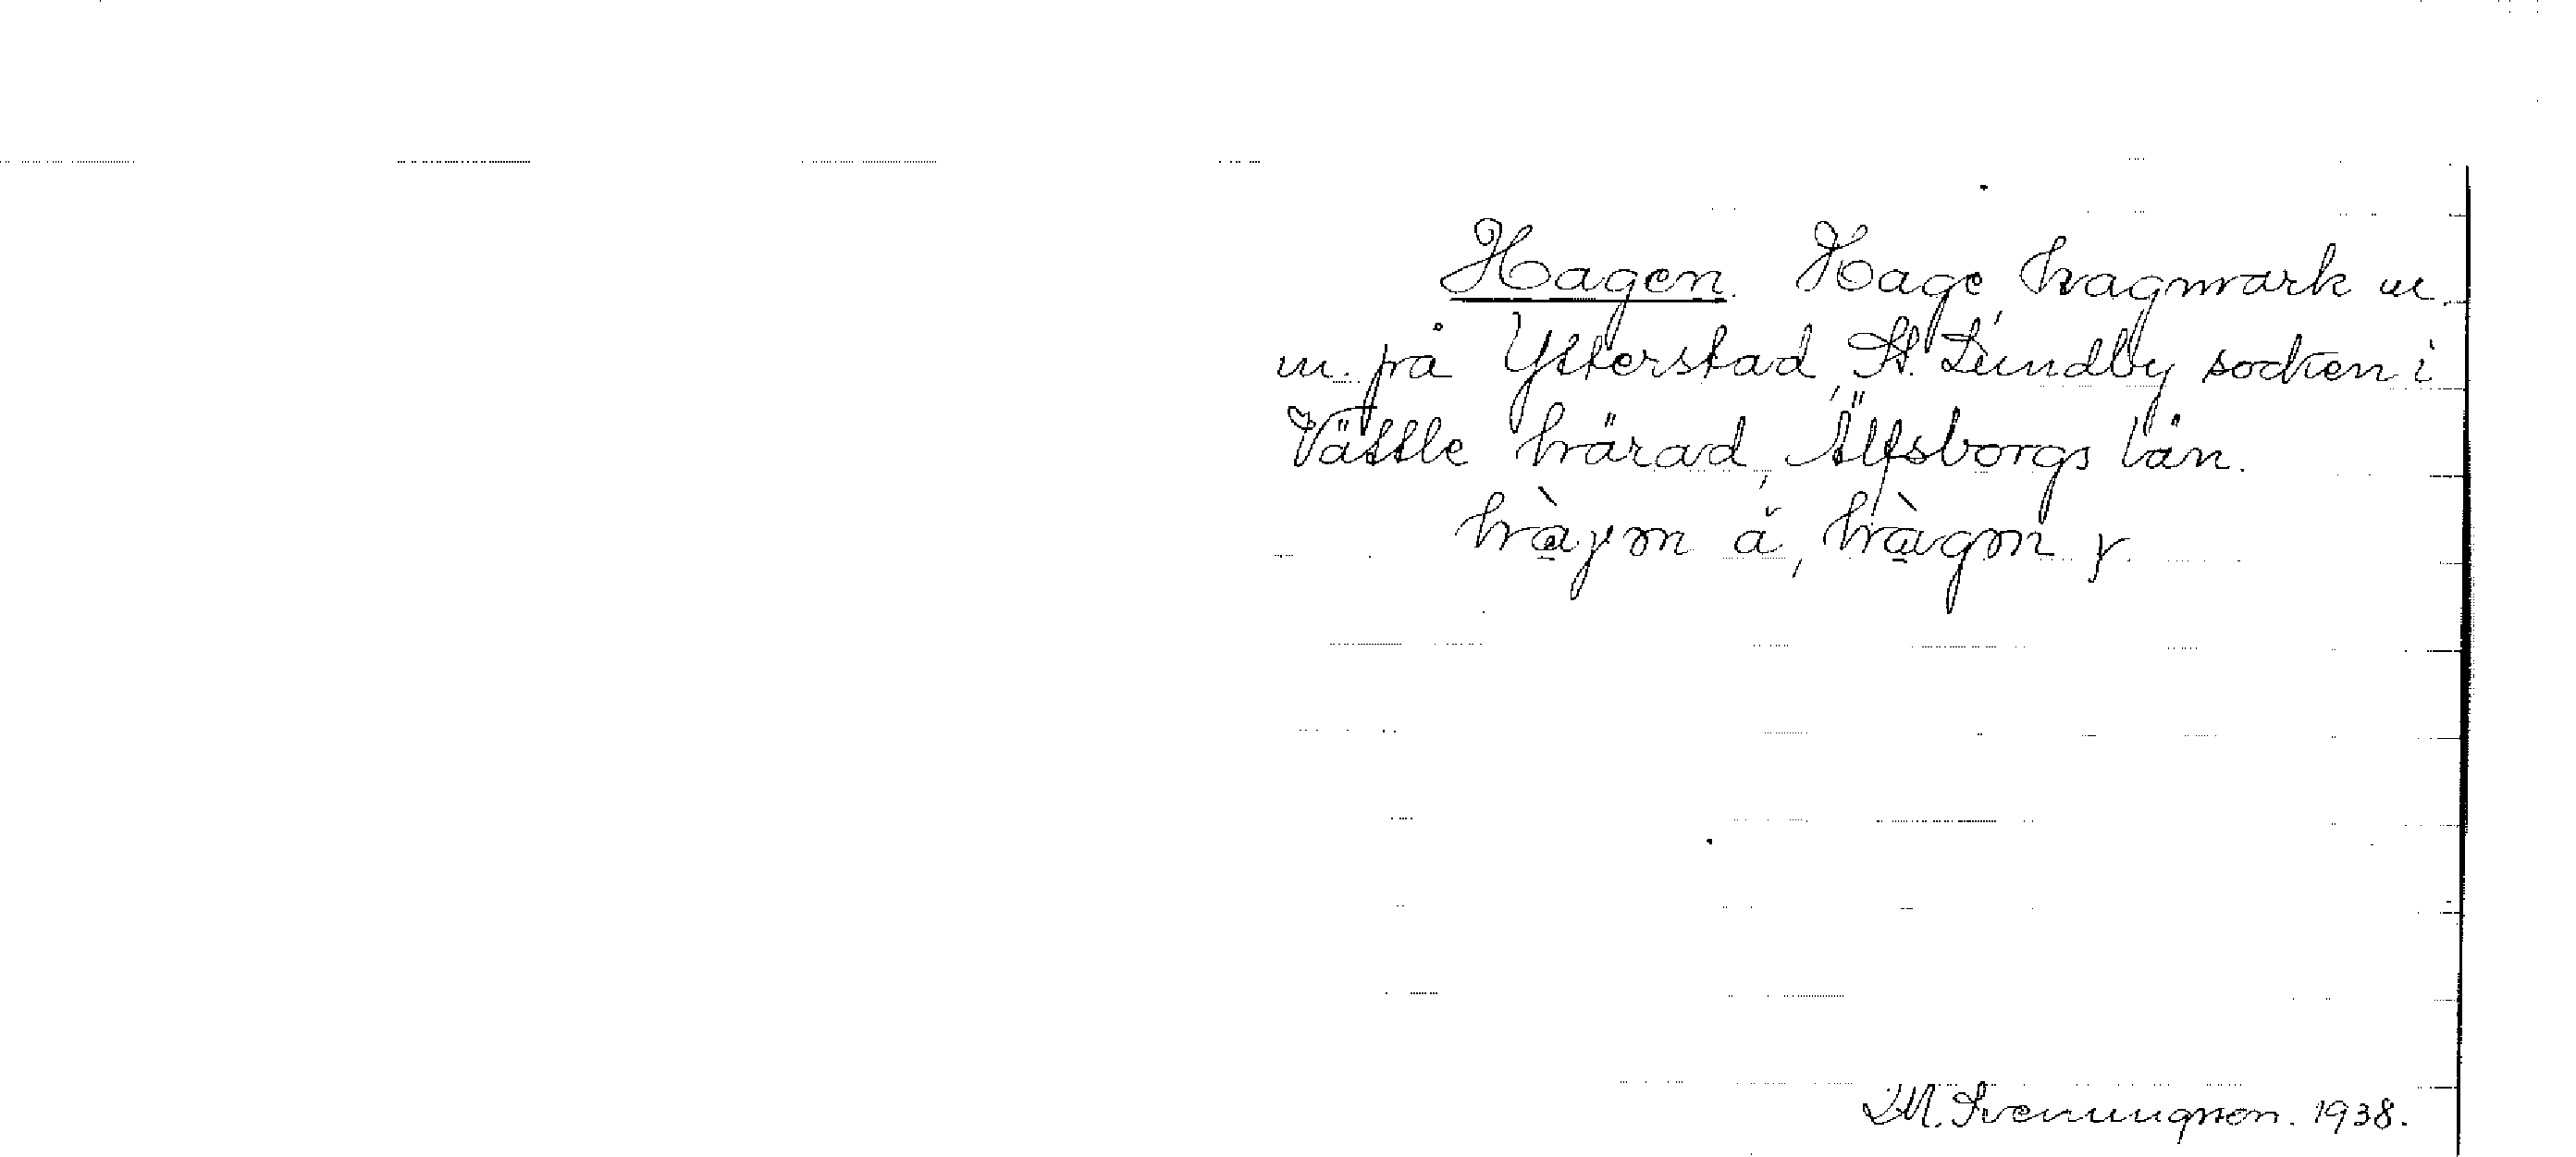 Hagen. Hage, hagmark m.
m. på Ytterstad, St. Lundby socken i
Vättle härad, Älfsborgs län.
hàɣən ä, hàgən y.
M. Svenungson. 1938.